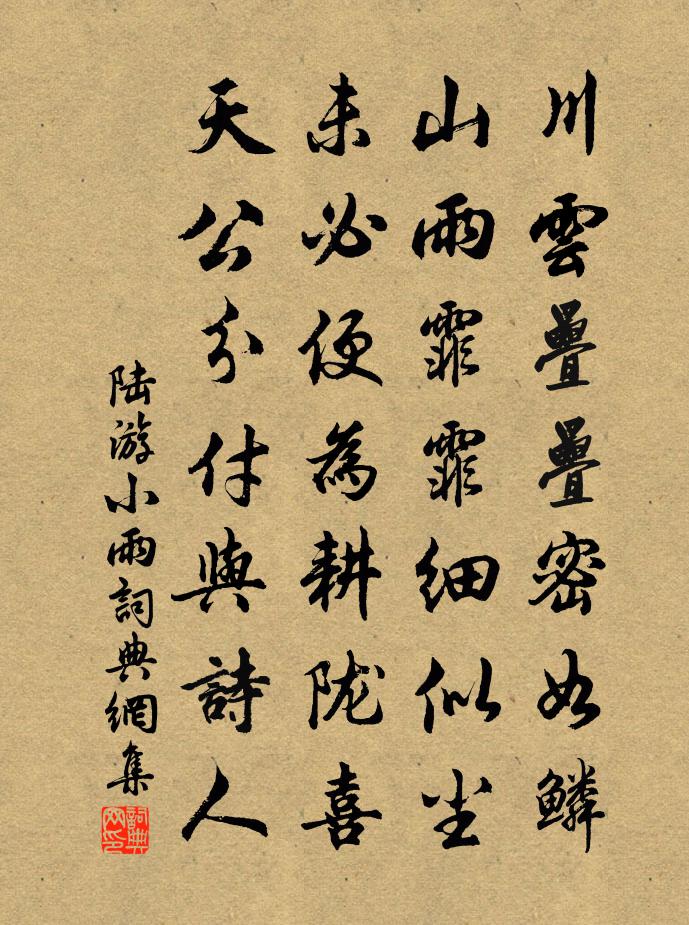 川雲疊疊密如鱗
山雨霏霏細似尘
未必便為耕陇喜
天公分付與詩人
陆游小雨詞典網集
詞典网印